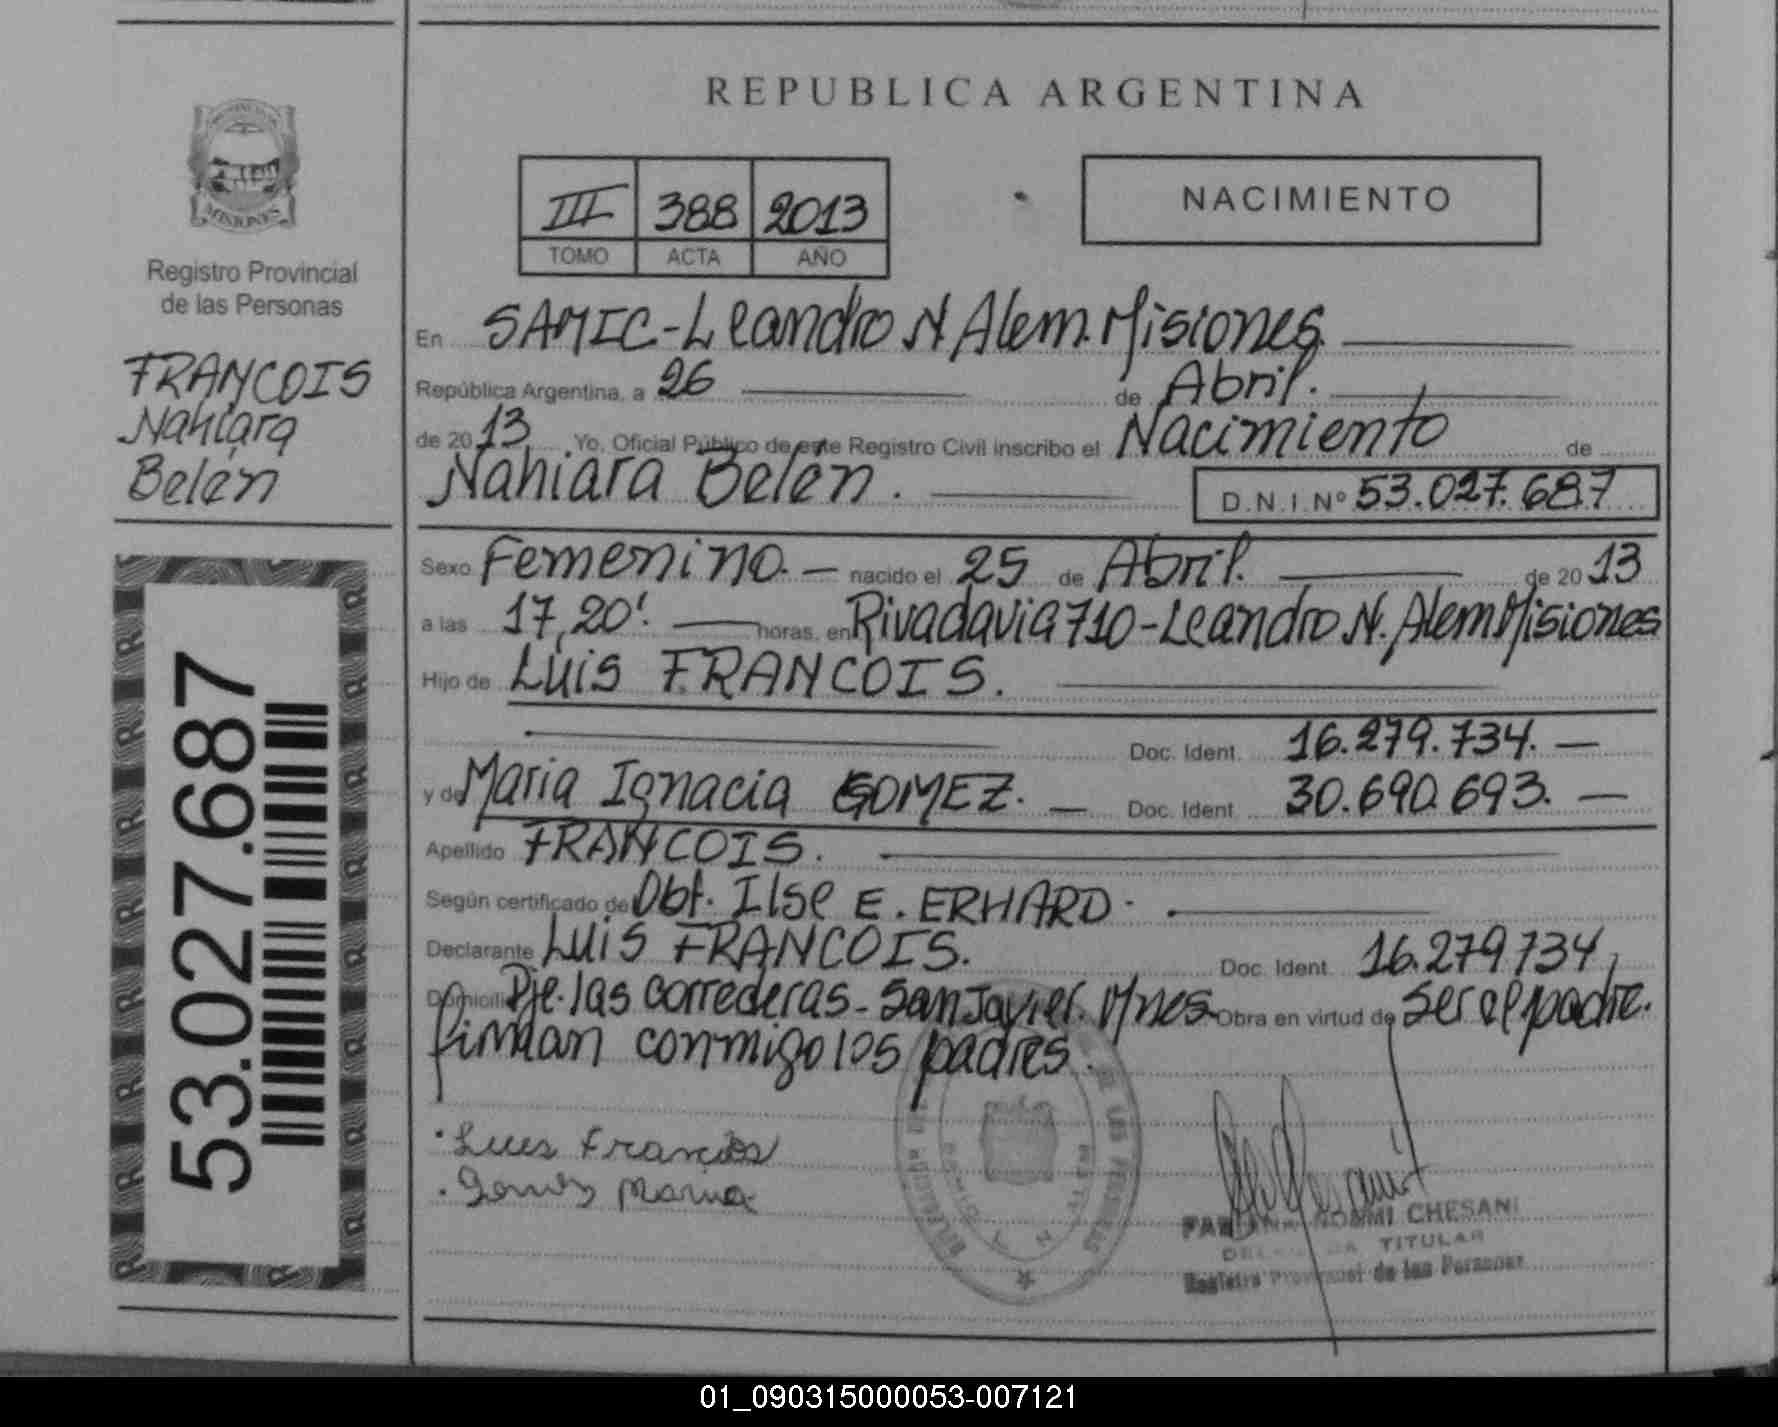 REPUBLICA ARGENTINA
MISIONES
Registro Provincial
de las Personas
FRANCOIS
Nahiara
Belén
53.027.687
III 388 2013
TOMO ACTA AÑO
NACIMIENTO
En SAMIC-Leandro N Alem. Misiones
República Argentina, a 26 de Abril.
de 2013 Yo, Oficial Público de este Registro Civil inscribo el Nacimiento de
Nahiara Belén. D.N.I.Nº 53.027.687
Sexo Femenino. nacido el 25 de Abril. de 2013
a las 17,20'. horas, en Rivadavia 710-Leandro N. Alem Misiones
Hijo de Luis FRANCOIS.
Doc. Ident. 16.279.734.
y de Maria Ignacia GOMEZ. Doc. Ident. 30.690.693.
Apellido FRANCOIS.
Según certificado de Obt. Ilse E. ERHARD
Declarante Luis FRANCOIS. Doc. Ident. 16.279734,
Domicilio Pje. las correderas- San Javier. Mnes Obra en virtud de ser el padre.
firman conmigo los padres.
Luis Francois
Gomes Maria
NOEMI CHESANI
TITULAR
Registro Provincial de las Personas
01_090315000053-007121